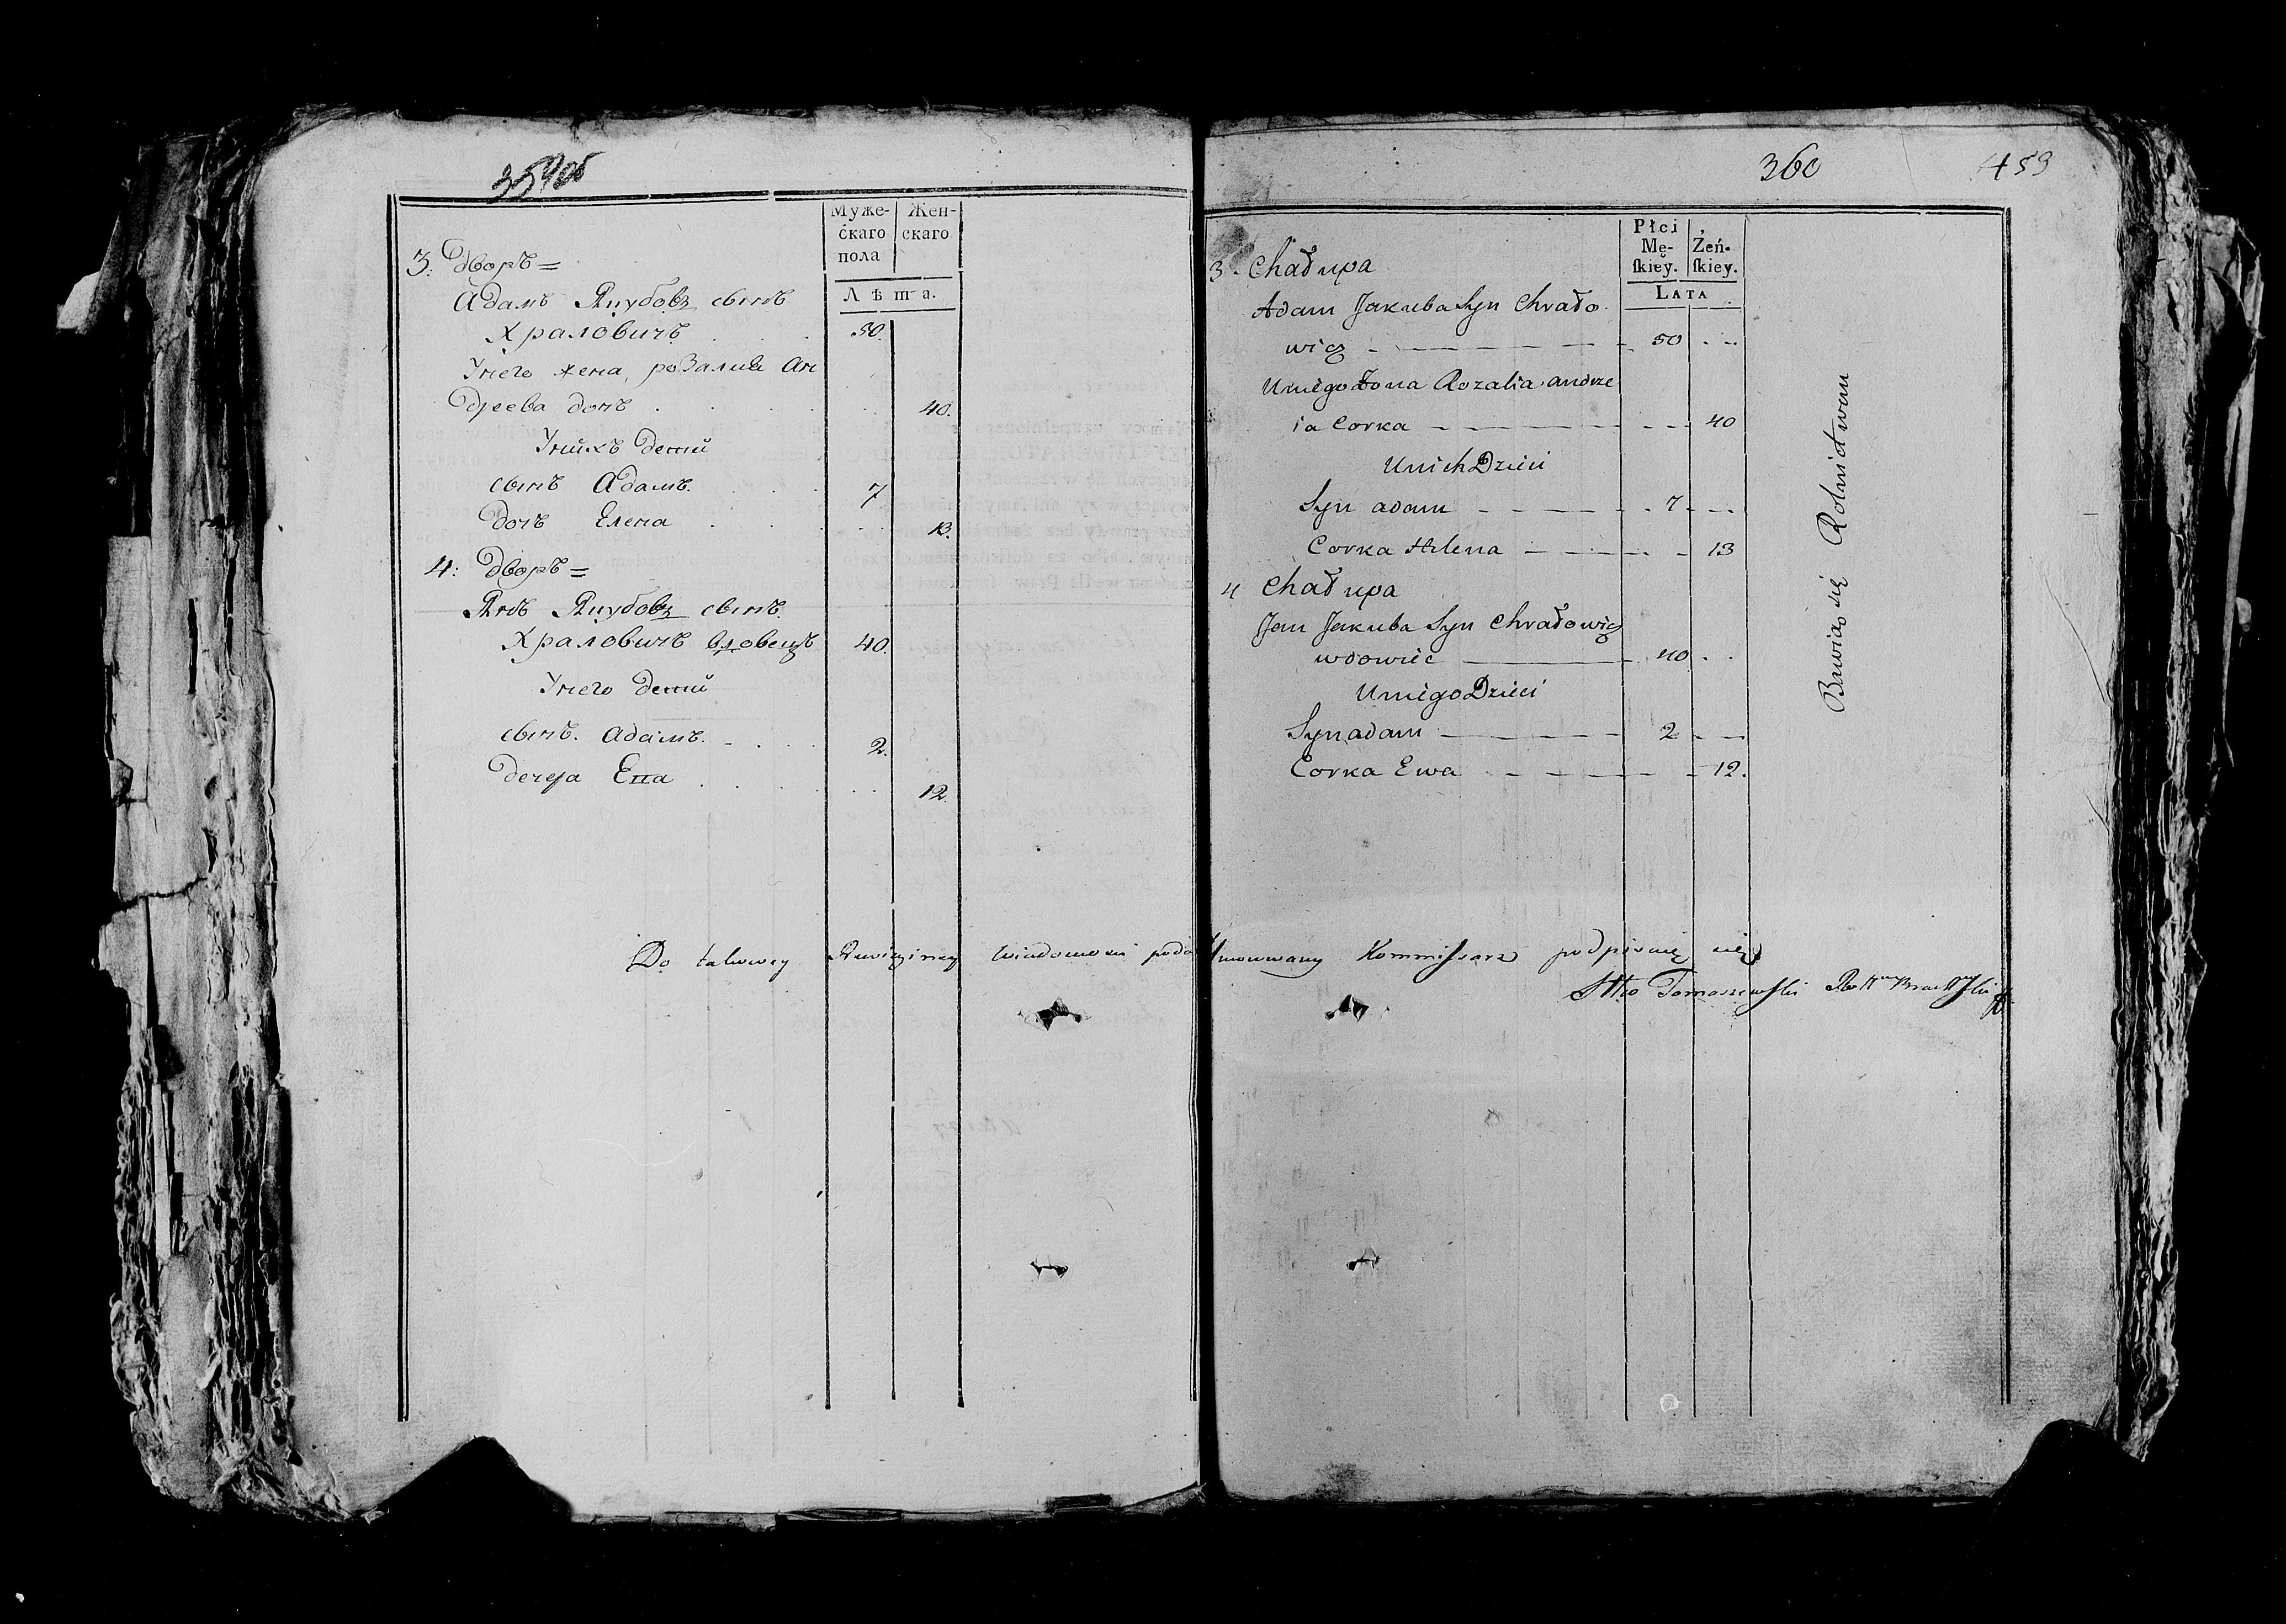 359об
Муже-
скаго
пола
Жен-
скаго
Лѣта.
3: Дворъ=
Адамъ Якубовъ сынъ
Храловичъ . . . 50.
Унего жена, розалия Ан
Дреева дочъ . . . 40.
Унихъ Дети
сынъ Адамъ. . . . 7
Дочъ Елена . . . 13.
4: Дворъ=
Янъ Якубовъ сынъ.
Храловичъ вдовецъ 40.
Унего Дети
сынъ. Адамъ. . . . 2.
Дочеря Ева . . . 12.
360 459
Płci
Mę-
ſkiey.
Żeń-
ſkiey.
LATA
3 - Chałupa
Adam Jakuba Syn Chrało-
wicz 50
Uniego Żona Rozalia andrze
ia Corka 40
Unich Dzieci
Syn adam 7
Corka Helena 13
4 Chałupa
Jan Jakuba Syn Chrałowicz
wdowiec 40
Uniego Dzieci
Syn adam 2
Corka Ewa 12.
Bawią się Rolnictwem
Do takowey Rewizyiney wiadomosci Kommissarz podpisuię się
Tomaszewski